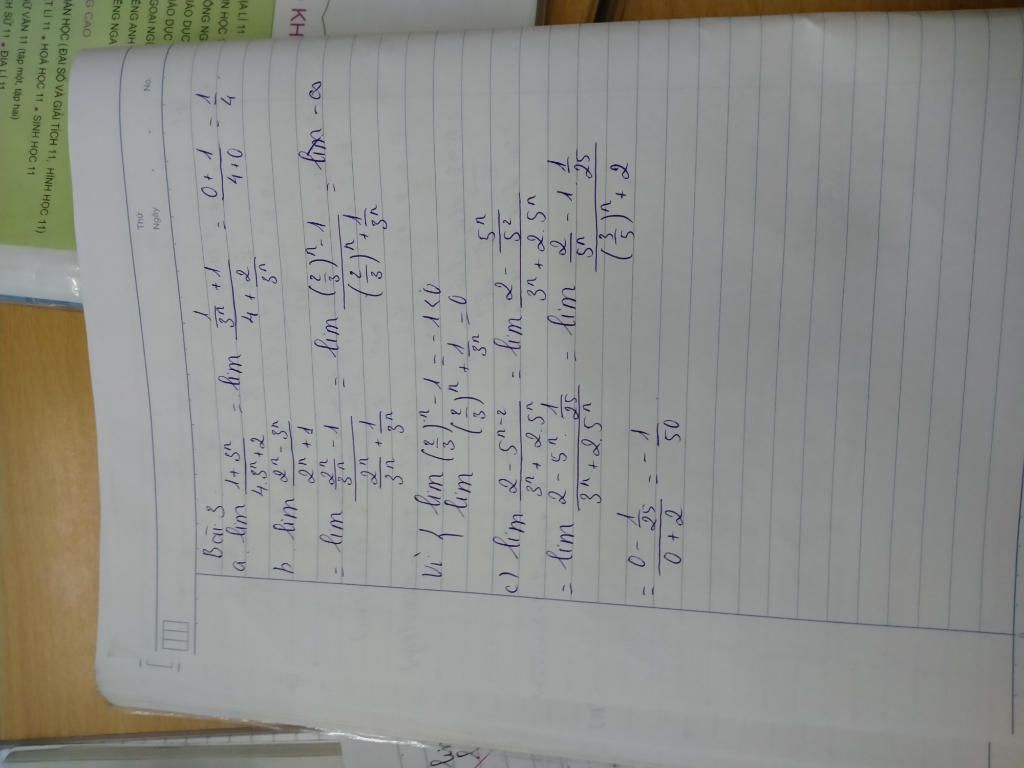 Thứ
Ngày
No.
Bài 3
a. lim (1 + 3ⁿ)/(4.3ⁿ + 2) = lim (1/3ⁿ + 1)/(4 + 2/3ⁿ) = (0 + 1)/(4 + 0) = 1/4
b lim (2ⁿ - 3ⁿ)/(2ⁿ + 1)
= lim (2ⁿ/3ⁿ - 1)/(2ⁿ/3ⁿ + 1/3ⁿ) = lim ((2/3)ⁿ - 1)/((2/3)ⁿ + 1/3ⁿ) = lim - ∞
Vì { lim (2/3)ⁿ - 1 = - 1 < 0
lim (2/3)ⁿ + 1/3ⁿ = 0
c) lim (2 - 5ⁿ⁻²)/(3ⁿ + 2.5ⁿ) = lim (2 - 5ⁿ/5²)/(3ⁿ + 2.5ⁿ)
= lim (2 - 5ⁿ. 1/25)/(3ⁿ + 2.5ⁿ) = lim (2/5ⁿ - 1 1/25)/((3/5)ⁿ + 2)
= (0 - 1/25)/(0 + 2) = - 1/50
KH
ĐỊA LÍ 11
NG CAO
HÁN HỌC (ĐẠI SỐ VÀ GIẢI TÍCH 11, HÌNH HỌC 11)
T LÍ 11 • HOÁ HỌC 11 • SINH HỌC 11
Ữ VĂN 11 (tập một, tập hai)
CH SỬ 11 • ĐỊA LÍ 11